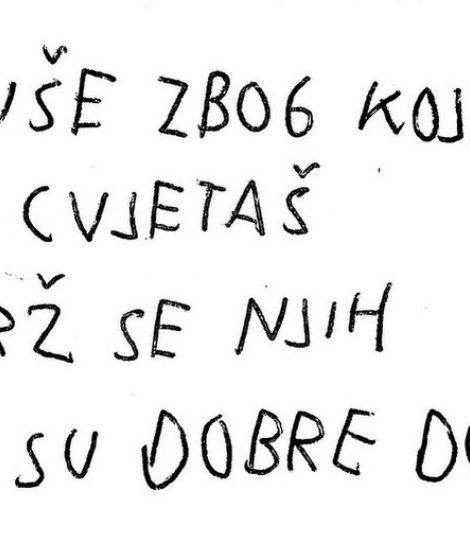 UŠE ZBOG KOJ
CVJETAŠ
RŽ SE NJIH
SU DOBRE DO